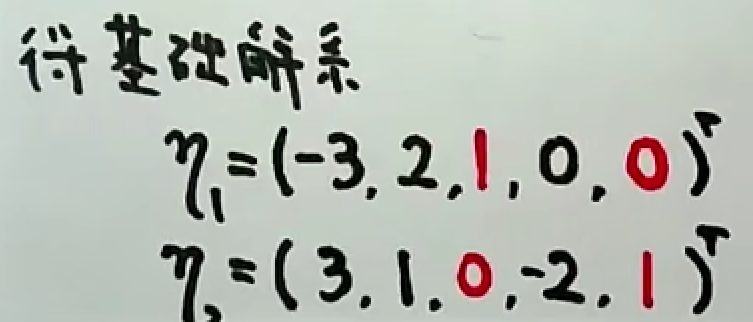 得基础解系
η₁=(-3,2,1,0,0)ᵀ
η₂=(3,1,0,-2,1)ᵀ